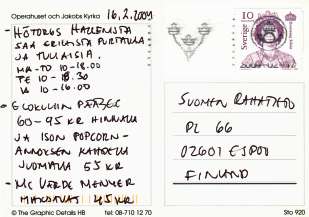 Operahuset och Jakobs Kyrka
16.2.2001
- HÖTORGS HALLENISTA
SAA ERILAISTA PURTAVAA
JA TUTLAISIA.
MA-TO 10-18.00
PE 10-18.30
LA 10-16.00
- ELOKUVIIN PÄÄSEE
60-95 KR HINNALLA
JA ISON POPCORN-
ANNOKSEN KAHDELLA
JUOMALLA 55 KR
- MC VÄRDE MENYER
MAKSAVAT 45 KR
Sverige
10
SUOMEN RAHATIETO
PL 66
02601 ESPOO
FINLAND
© The Graphic Details HB
tel: 08-710 12 70
Sto 920